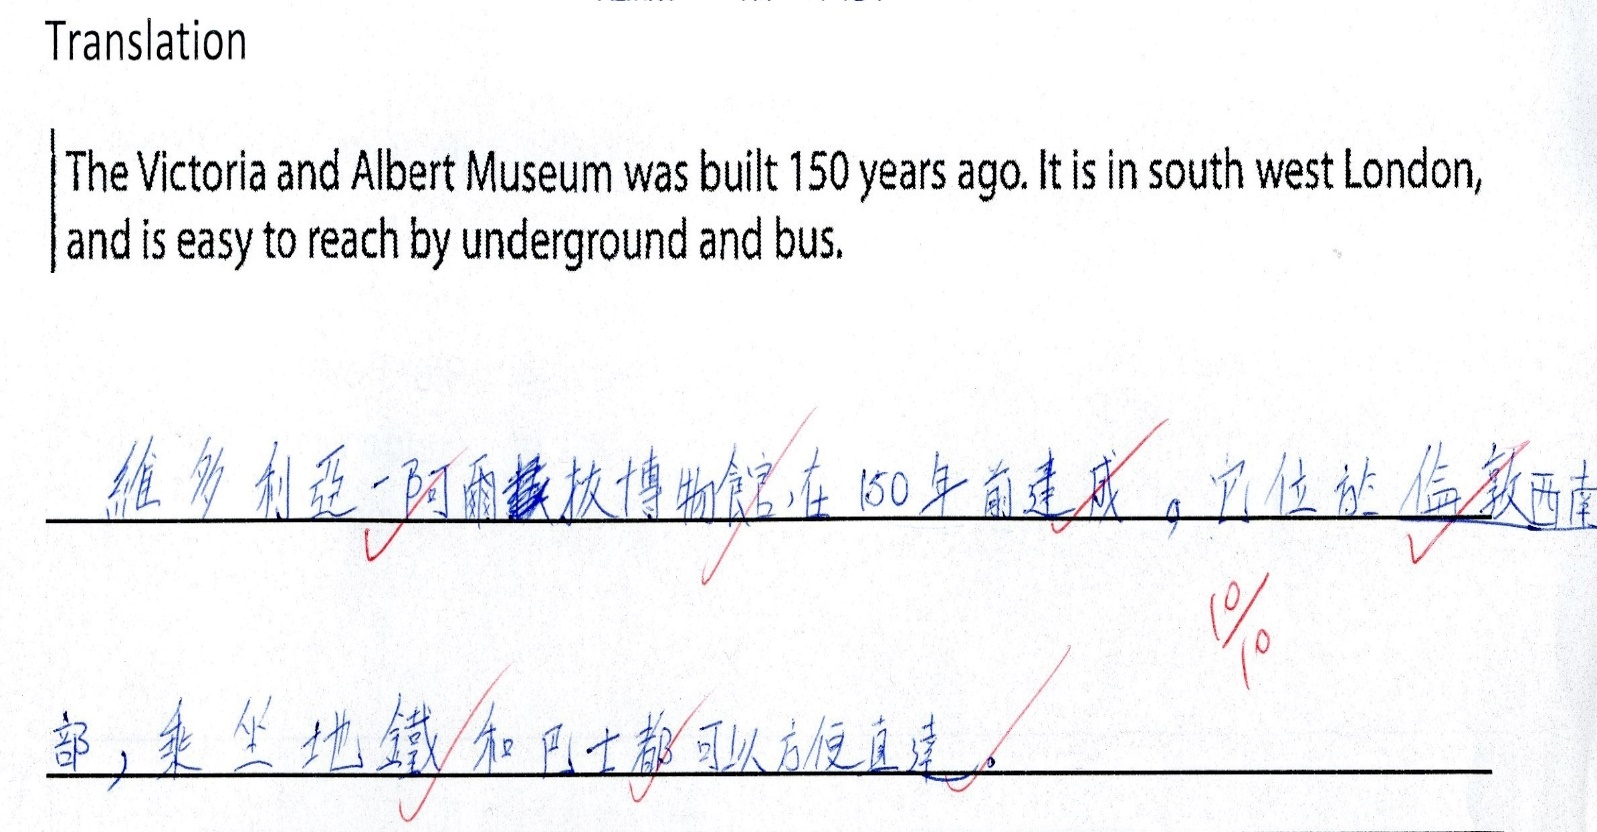 Translation
The Victoria and Albert Museum was built 150 years ago. It is in south west London,
and is easy to reach by underground and bus.
維多利亞-阿爾拔博物館,在150年前建成,它位於倫敦西南
10/10
部,乘坐地鐵和巴士都可以方便直達。